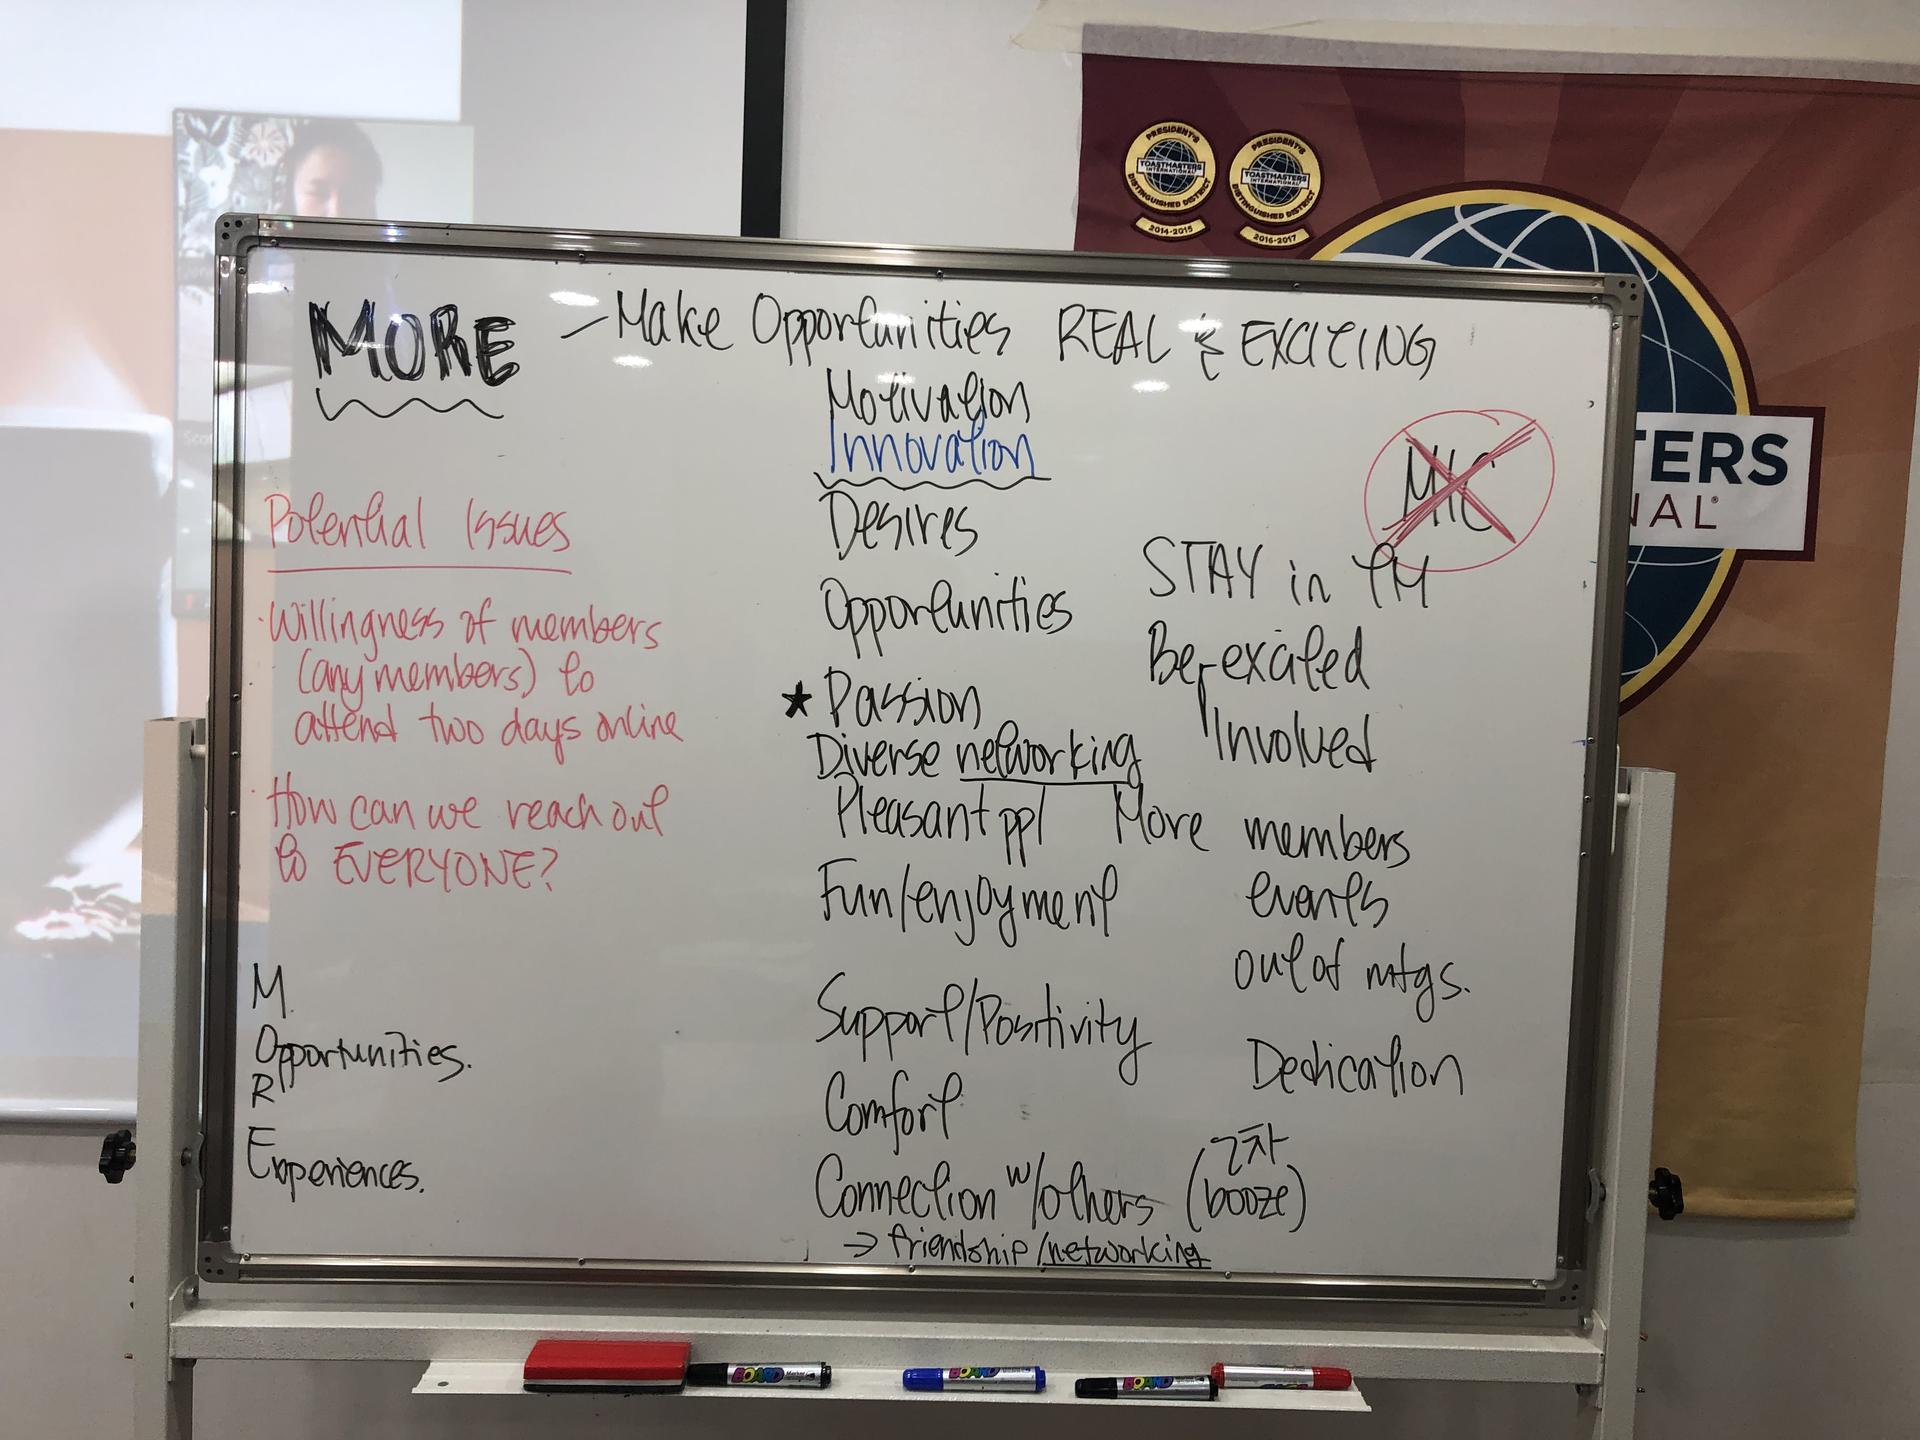 PRESIDENT'S
TOASTMASTERS
INTERNATIONAL
DISTINGUISHED DISTRICT
2014-2015
PRESIDENT'S
TOASTMASTERS
INTERNATIONAL
DISTINGUISHED DISTRICT
2016-2017
TERS
NAL®
MORE – Make Opportunities REAL & EXCITING
Motivation
Innovation
Desires
Opportunities
★ Passion
Diverse networking
Pleasant ppl
Fun/enjoyment
Support/Positivity
Comfort
Connection w/others (2차 booze)
→ friendship/networking
MIC
STAY in TM
Be excited
Involved
More members
events
out of mtgs.
Dedication
Potential Issues
· Willingness of members
(any members) to
attend two days online
· How can we reach out
to EVERYONE?
M.
Opportunities.
R
Experiences.
BOARD Marker
BOARD
BOARD